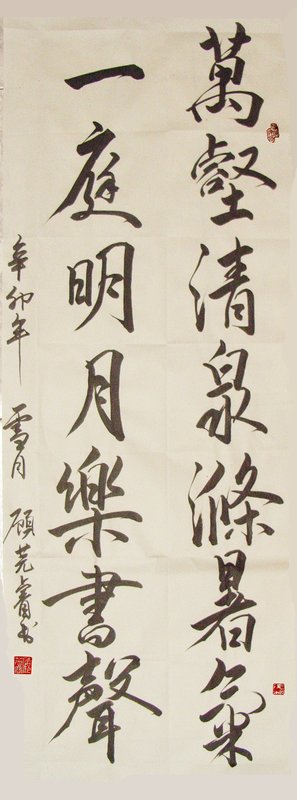 萬壑清泉滌暑氣
一庭明月樂書聲
辛卯年 雪月 顧莞睿书